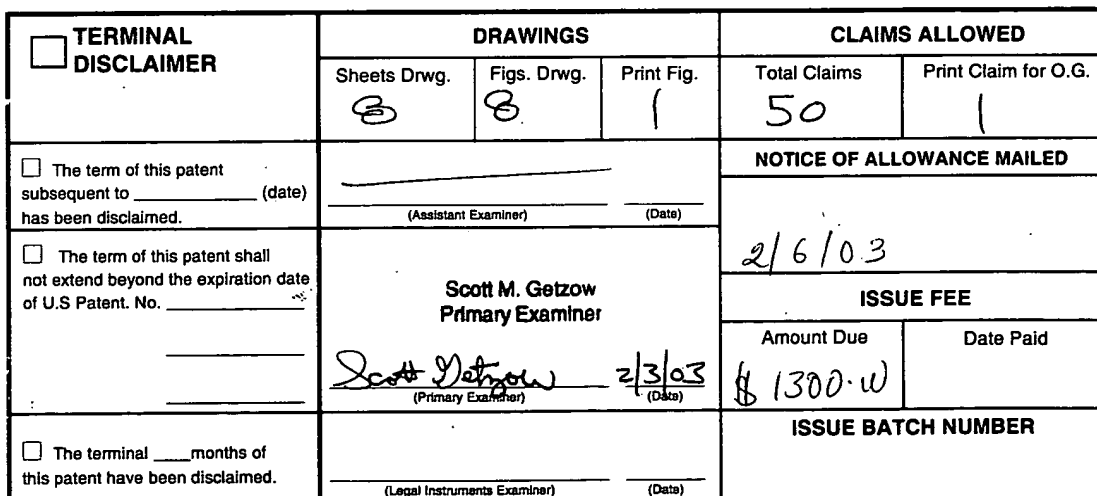 TERMINAL
DISCLAIMER
DRAWINGS
CLAIMS ALLOWED
Sheets Drwg.
Figs. Drwg.
Print Fig.
Total Claims
Print Claim for O.G.
8
8
1
50
1
☐ The term of this patent
subsequent to ________ (date)
has been disclaimed.
(Assistant Examiner)
(Date)
NOTICE OF ALLOWANCE MAILED
2/6/03
☐ The term of this patent shall
not extend beyond the expiration date
of U.S Patent. No. ________
Scott M. Getzow
Primary Examiner
Scott Getzow 2/3/03
(Primary Examiner)
(Date)
ISSUE FEE
Amount Due
Date Paid
$ 1300.00
ISSUE BATCH NUMBER
☐ The terminal ____months of
this patent have been disclaimed.
(Legal Instruments Examiner)
(Date)